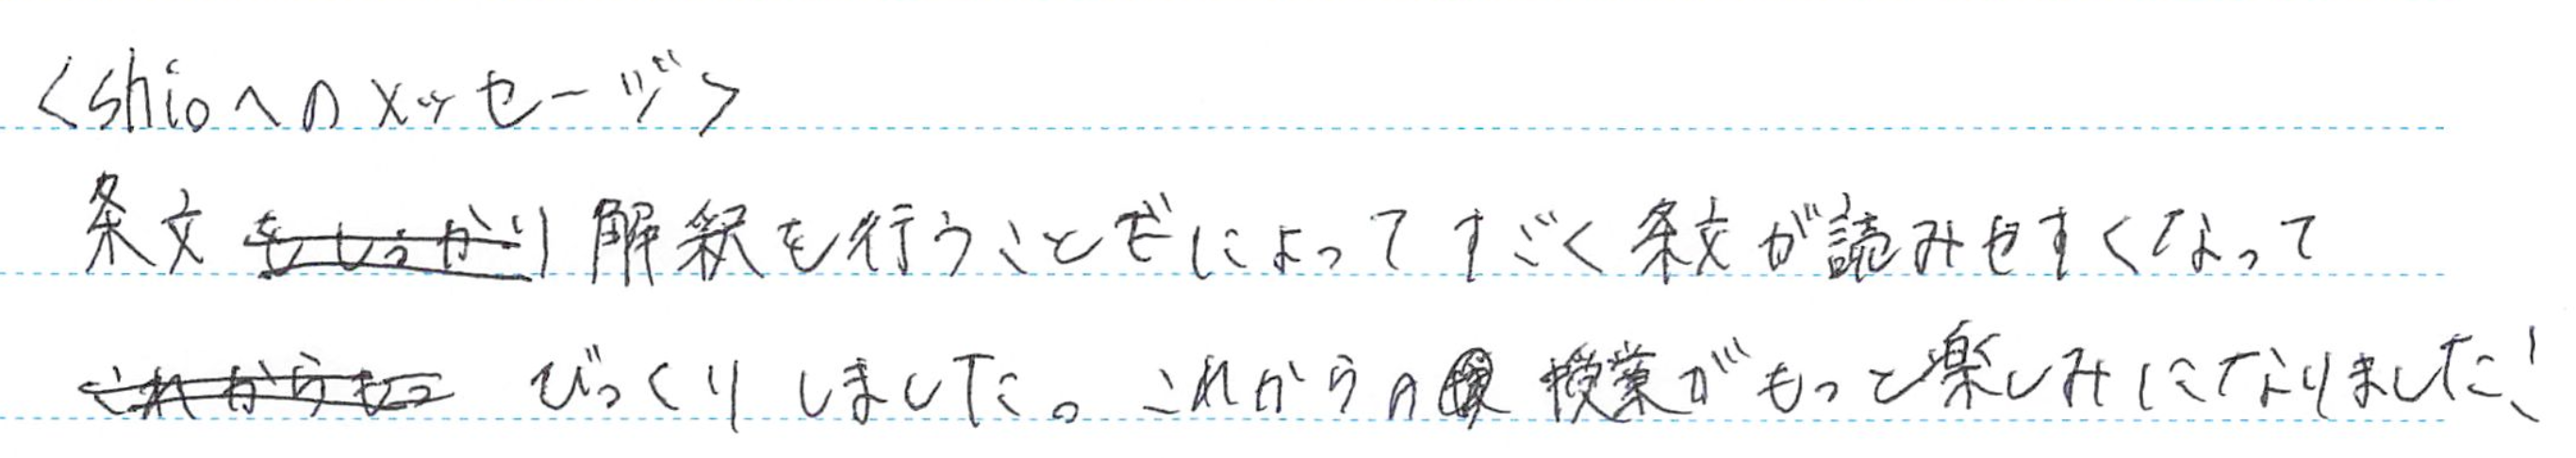 <shioへのメッセージ>
条文解釈を行うことでによってすごく条文が読みやすくなって
びっくりしました。これからの授業がもっと楽しみになりました!